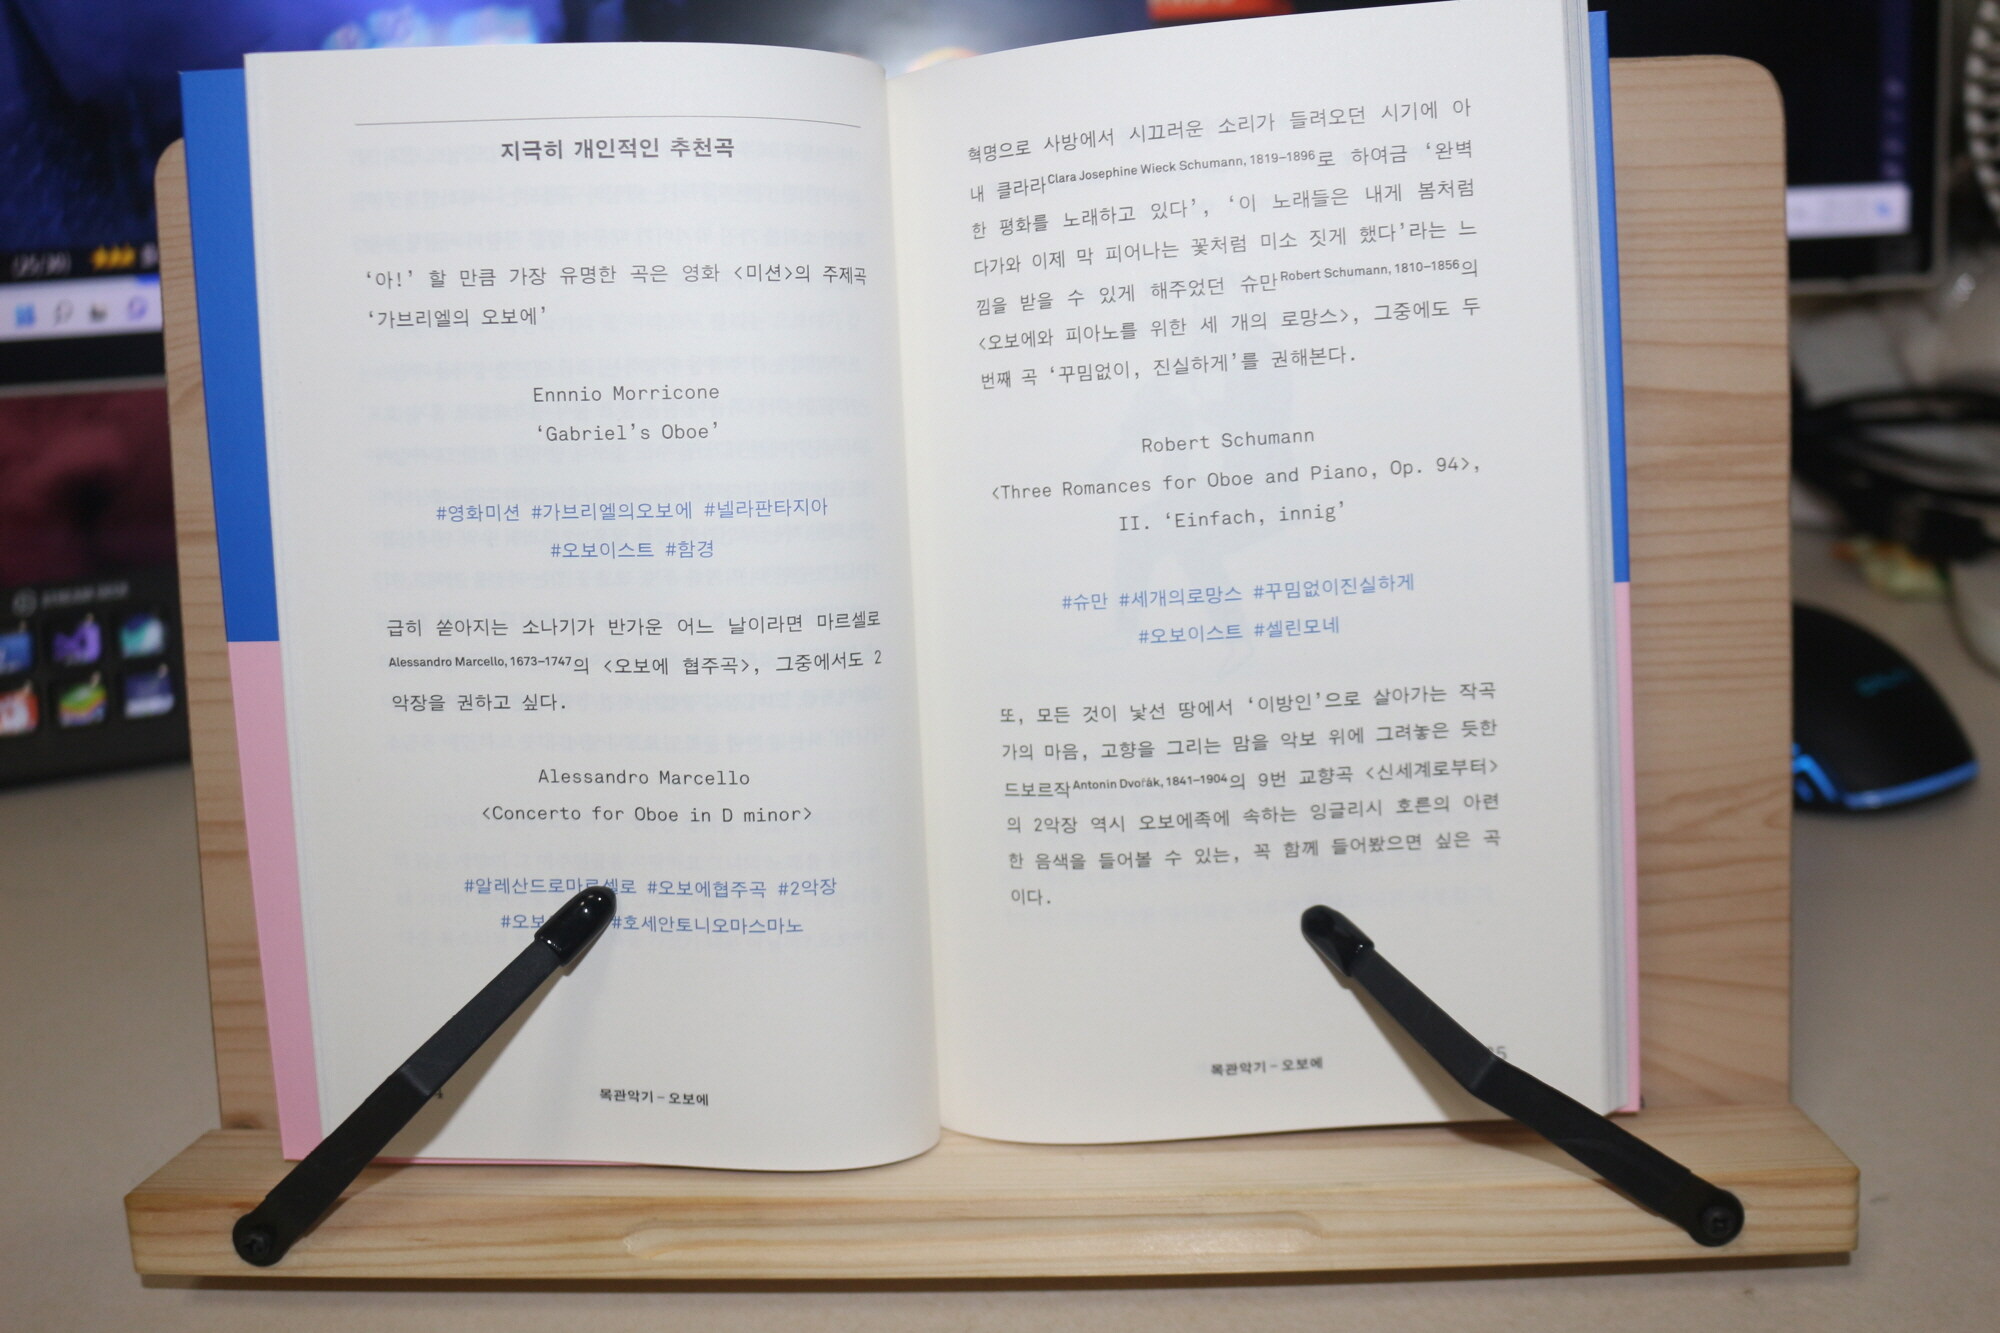 지극히 개인적인 추천곡
‘아!’ 할 만큼 가장 유명한 곡은 영화 <미션>의 주제곡
‘가브리엘의 오보에’
Ennnio Morricone
‘Gabriel’s Oboe’
#영화미션 #가브리엘의오보에 #넬라판타지아
#오보이스트 #함경
급히 쏟아지는 소나기가 반가운 어느 날이라면 마르셀로
Alessandro Marcello, 1673–1747의 <오보에 협주곡>, 그중에서도 2
악장을 권하고 싶다.
Alessandro Marcello
<Concerto for Oboe in D minor>
#알레산드로마르셀로 #오보에협주곡 #2악장
#호세안토니오마스마노
목관악기 – 오보에
혁명으로 사방에서 시끄러운 소리가 들려오던 시기에 아
내 클라라Clara Josephine Wieck Schumann, 1819–1896로 하여금 ‘완벽
한 평화를 노래하고 있다’, ‘이 노래들은 내게 봄처럼
다가와 이제 막 피어나는 꽃처럼 미소 짓게 했다’라는 느
낌을 받을 수 있게 해주었던 슈만Robert Schumann, 1810–1856의
<오보에와 피아노를 위한 세 개의 로망스>, 그중에도 두
번째 곡 ‘꾸밈없이, 진실하게’를 권해본다.
Robert Schumann
<Three Romances for Oboe and Piano, Op. 94>,
II. ‘Einfach, innig’
#슈만 #세개의로망스 #꾸밈없이진실하게
#오보이스트 #셀린모네
또, 모든 것이 낯선 땅에서 ‘이방인’으로 살아가는 작곡
가의 마음, 고향을 그리는 맘을 악보 위에 그려놓은 듯한
드보르작Antonín Dvořák, 1841–1904의 9번 교향곡 <신세계로부터>
의 2악장 역시 오보에족에 속하는 잉글리시 호른의 아련
한 음색을 들어볼 수 있는, 꼭 함께 들어봤으면 싶은 곡
이다.
목관악기 – 오보에